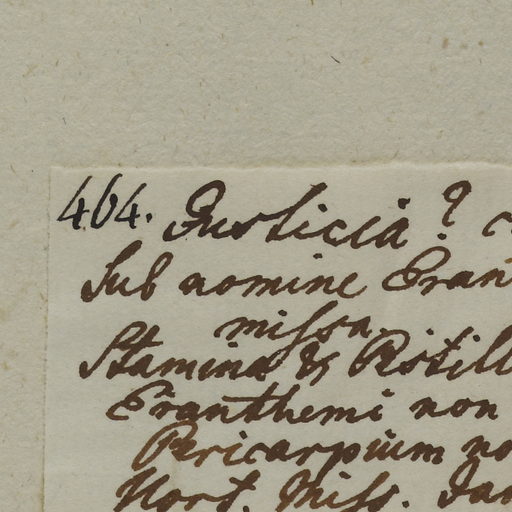 464. Justicia?
Sub nomine Eran
missa.
Stamina & Pistill
Eranthemi non
Pericarpium no
Hort. Miss. Jan